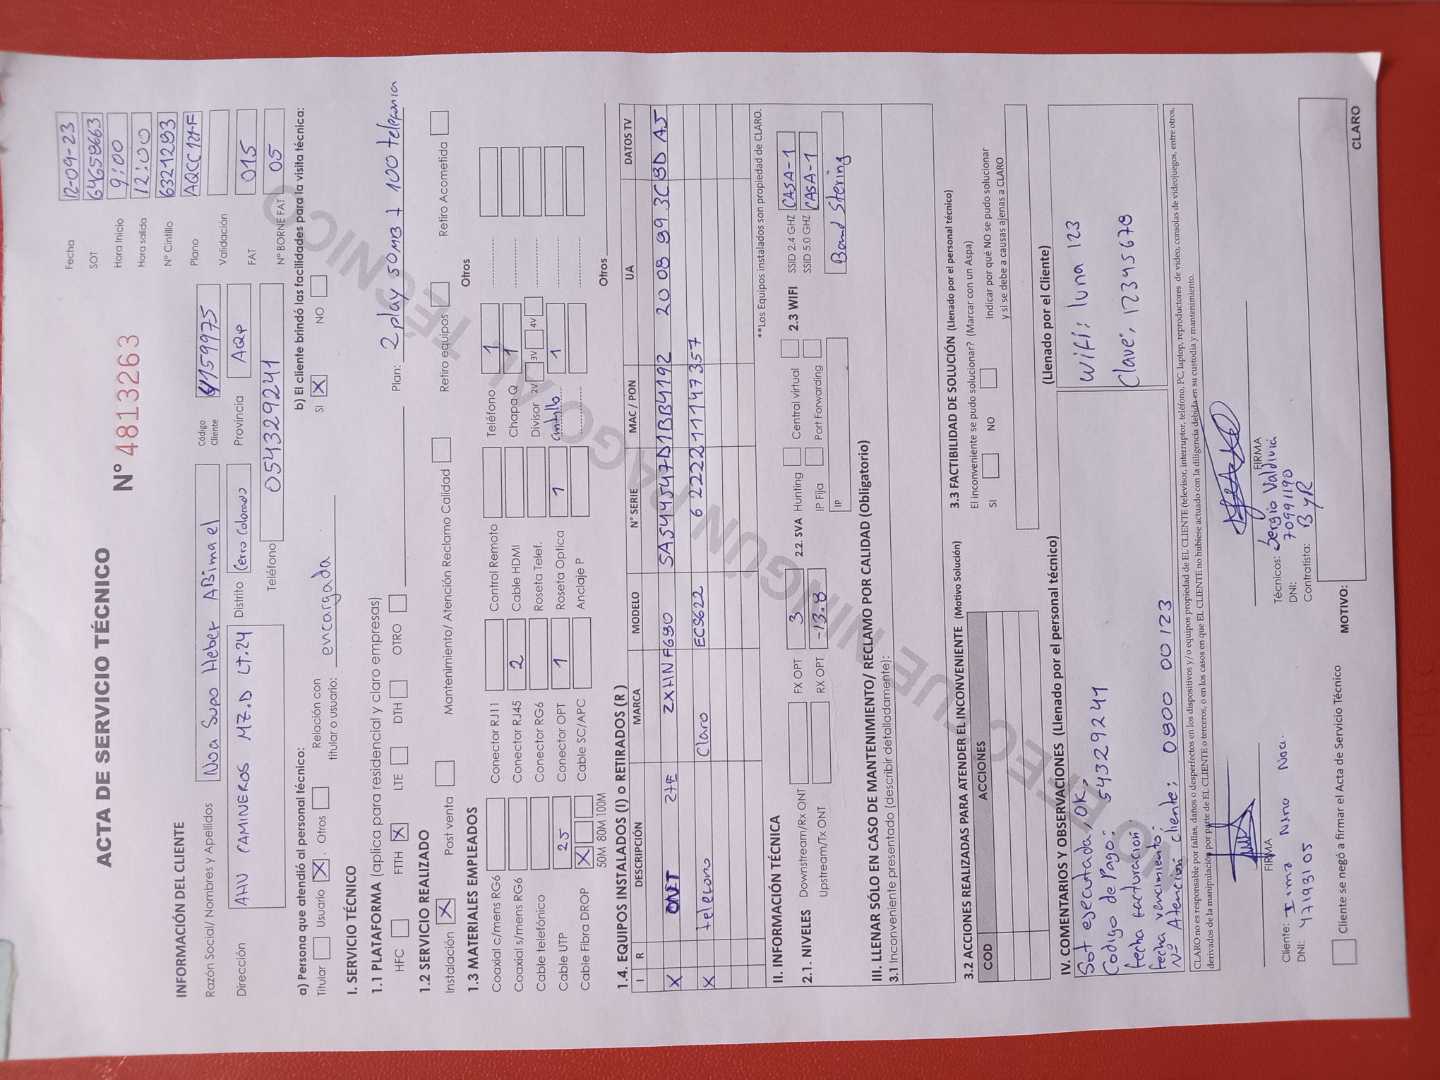 ACTA DE SERVICIO TÉCNICO
N° 4813263
Fecha 12-09-23
SOT 64659663
Hora Inicio 9:00
Hora salida 12:00
N° Cintillo 6321293
Plano AQCC121-F
Validación
FAT 015
N° BORNE FAT 05
INFORMACIÓN DEL CLIENTE
Razón Social/ Nombres y Apellidos Noa Supo Heber ABimael
Código Cliente 4159975
Dirección AHU CAMINEROS MZ.D LT.24
Distrito Cerro Colorado
Provincia AQP
Teléfono 054329241
a) Persona que atendió al personal técnico:
Titular Usuario X . Otros Relación con titular o usuario: encargada
b) El cliente brindó las facilidades para la visita técnica:
SI X NO
I. SERVICIO TÉCNICO
1.1 PLATAFORMA (aplica para residencial y claro empresas)
HFC FTTH X LTE DTH OTRO
Plan: 2play 50MB + 100 telefonia
1.2 SERVICIO REALIZADO
Instalación X Post venta Mantenimiento/ Atención Reclamo Calidad Retiro equipos Retiro Acometida
1.3 MATERIALES EMPLEADOS
Otros
Coaxial c/mens RG6 Conector RJ11 Control Remoto Teléfono 1
Coaxial s/mens RG6 Conector RJ45 2 Cable HDMI Chapa Q 1
Cable telefónico Conector RG6 Roseta Telef. Divisor 2V 3V 4V
Cable UTP 25 Conector OPT 1 Roseta Optica 1 Cintillo 1
Cable Fibra DROP X Cable SC/APC Anclaje P
50M 80M 100M
Otros
1.4. EQUIPOS INSTALADOS (I) o RETIRADOS (R )
I R DESCRIPCIÓN MARCA MODELO N° SERIE MAC / PON UA DATOS TV
X ONT ZTE ZXHN F680 5A544547D1BB4192 20 08 89 3C BD A5
X telefono Claro ECS622 622211147357
**Los Equipos instalados son propiedad de CLARO.
II. INFORMACIÓN TÉCNICA
2.1. NIVELES Downstream/Rx ONT FX OPT 3
Upstream/Tx ONT RX OPT -13.8
2.2. SVA Hunting Central virtual
IP Fija Port Forwarding
IP
2.3 WIFI SSID 2.4 GHZ CASA-1
SSID 5.0 GHZ CASA-1
Band Stering
III. LLENAR SÓLO EN CASO DE MANTENIMIENTO/ RECLAMO POR CALIDAD (Obligatorio)
3.1 Inconveniente presentado (describir detalladamente):
3.2 ACCIONES REALIZADAS PARA ATENDER EL INCONVENIENTE (Motivo Solución)
COD ACCIONES
3.3 FACTIBILIDAD DE SOLUCIÓN (Llenado por el personal técnico)
El inconveniente se pudo solucionar? (Marcar con un Aspa)
SI NO
Indicar por qué NO se pudo solucionar
y si se debe a causas ajenas a CLARO
IV. COMENTARIOS Y OBSERVACIONES (Llenado por el personal técnico)
Sot ejecutada, OK,
Codigo de Pago: 54329241
fecha facturación:
fecha vencimiento:
N° Atención cliente: 0800 00 123
(Llenado por el Cliente)
Wifi: luna 123
Clave: 12345678
CLARO no es responsable por fallas, daños o desperfectos en los dispositivos y/o equipos propiedad de EL CLIENTE (televisor, interruptor, teléfono, PC, laptop, reproductores de video, consolas de videojuegos, entre otros,
derivados de la manipulación por parte de EL CLIENTE o terceros, o en los casos en que EL CLIENTE no hubiese actuado con la diligencia debida en su custodia y mantenimiento.
FIRMA
Cliente: Irma Nina Noa.
DNI: 47193105
FIRMA
Técnicos: Sergio Valdivia
DNI: 70991190
Contratista: ByR
Cliente se negó a firmar el Acta de Servicio Técnico
MOTIVO:
CLARO
NINGÚN PAGO AL TÉCNICO